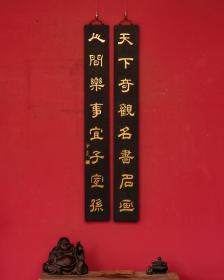 天下奇觀名書名画
心間樂事宜子宜孫